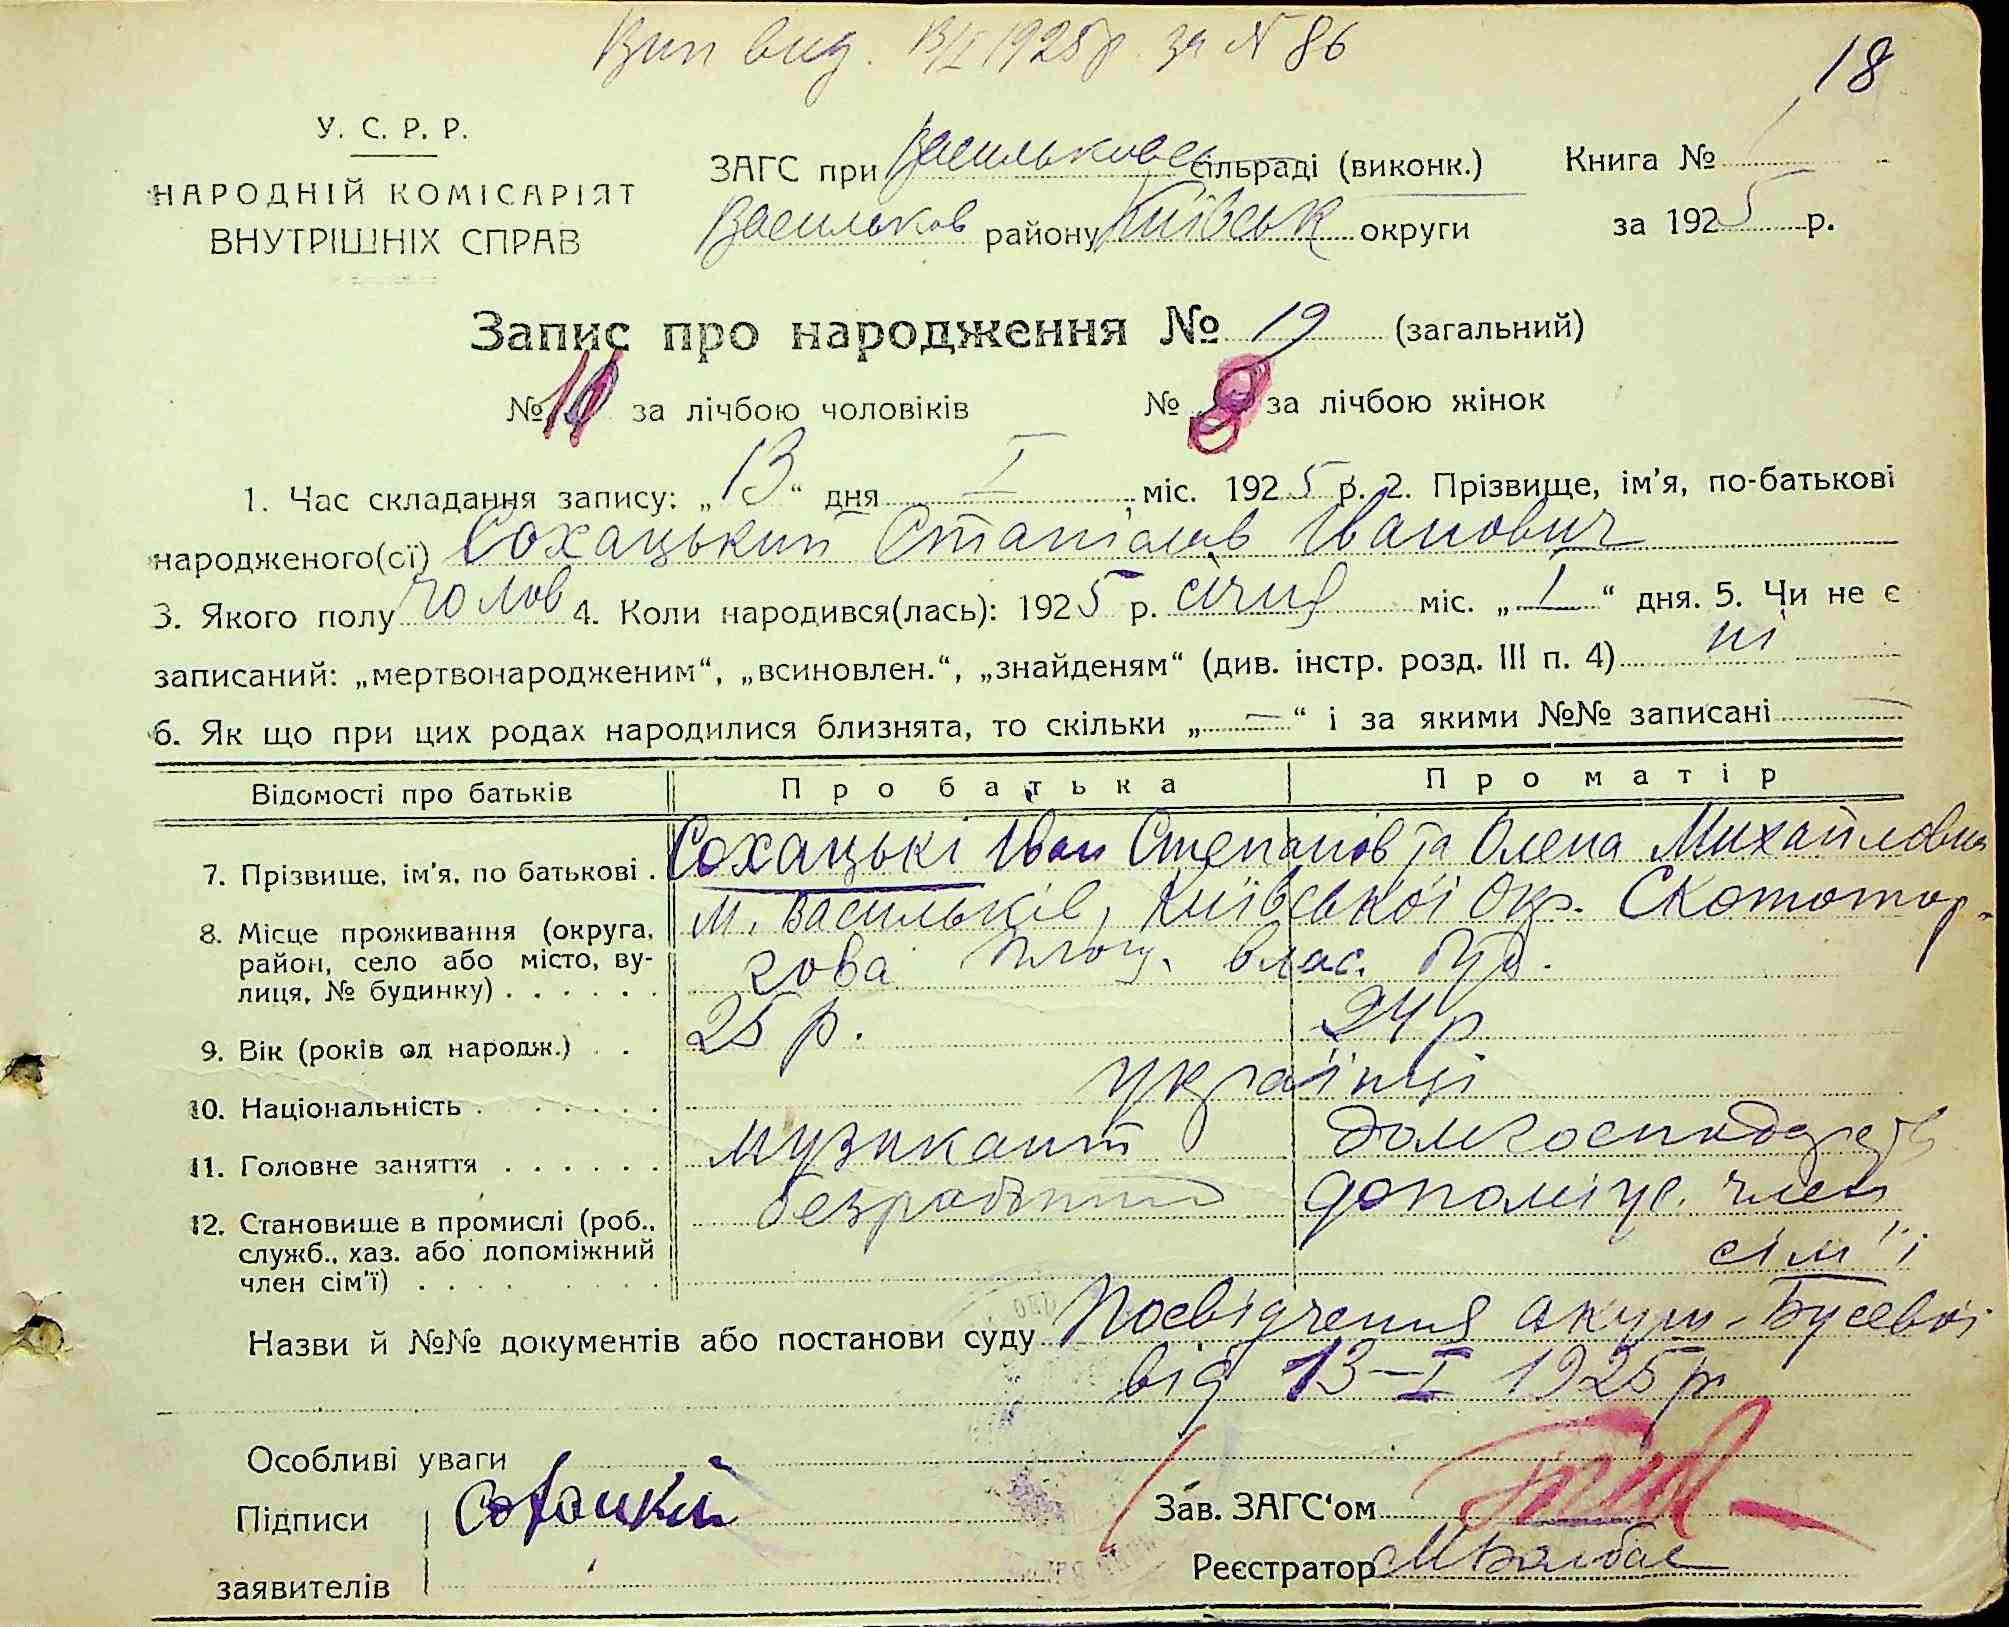 Вип вид. 13/I 1925 р. за № 86
18
У. С. Р. Р.
НАРОДНІЙ КОМІСАРІЯТ
ВНУТРІШНІХ СПРАВ
ЗАГС при Васильковск сільраді (виконк.)
Васильков району Київськ округи
Книга №
за 1925 р.
Запис про народження № 19 (загальний)
№ за лічбою чоловіків
№ за лічбою жінок
1. Час складання запису: „13“ дня I міс. 1925 р. 2. Прізвище, ім'я, по-батькові
народженого(сї) Сохацький Станіслав Іванович
3. Якого полу чолов 4. Коли народився(лась): 1925 р. січня міс. „I“ дня. 5. Чи не є
записаний: „мертвонародженим“, „всиновлен.“, „знайденям“ (див. інстр. розд. III п. 4) ні
6. Як що при цих родах народилися близнята, то скільки „—“ і за якими №№ записані —
Відомості про батьків
Про батька
Про матір
7. Прізвище, ім'я, по батькові . Сохацькі Іван Степанов та Олена Михайловна
8. Місце проживання (округа, район, село або місто, вулиця, № будинку) . . . . . . м. Васильків, Київської Окр. Скототоргова площ. влас. буд.
9. Вік (років од народж.) . . 25 р. 24 р
10. Національність . . . . . . . українці
11. Головне заняття . . . . . . музикант домгосподар
12. Становище в промислі (роб., служб., хаз. або допоміжний член сім'ї) . . . . . . . . безробітний допоміж. член сім"ї
Назви й №№ документів або постанови суду Посвідчення акуш. Бусевої
від 13-I 1925 р
Особливі уваги
Підписи
заявителів
Сохацкий
Зав. ЗАГС‘ом
Реєстратор